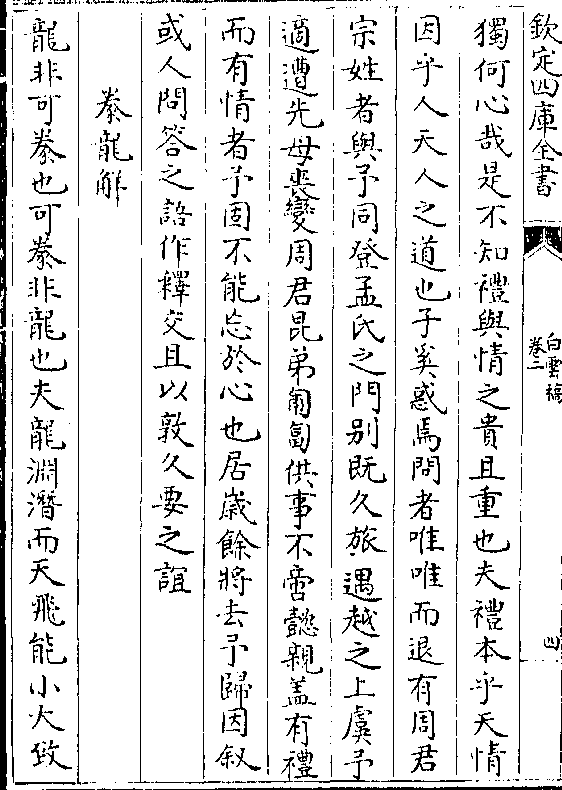 欽定四庫全書
白雲稿
卷三
四
獨何心哉是不知禮與情之貴且重也夫禮本乎天情
因乎人天人之道也子奚惑焉問者唯唯而退有周君
宗姓者與予同登孟氏之門別既久旅遇越之上虞予
適遭先母喪變周君昆弟匍匐供事不啻懿親蓋有禮
而有情者予固不能忘於心也居歲餘將去予歸因叙
或人問答之語作釋交且以敦久要之誼
豢龍解
龍非可豢也可豢非龍也夫龍淵潛而天飛能小大致